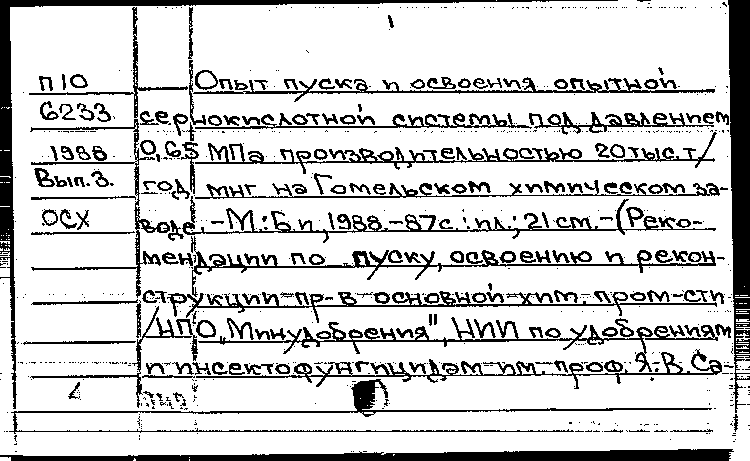 П10
6233
1988
Вып.3.
ОСХ
Опыт пуска и освоения опытной
сернокислотной системы под давлением
0,65 МПа производительностью 20 тыс.т/
год мнг на Гомельском химическом за-
воде. -М.: Б.и., 1988. -87с.: ил.; 21см. -(Реко-
мендации по пуску, освоению и рекон-
струкции пр-в основной хим. пром-сти
/НПО „Минудобрения", НИИ по удобрениям
и инсектофунгицидам им. проф. Я.В. Са-